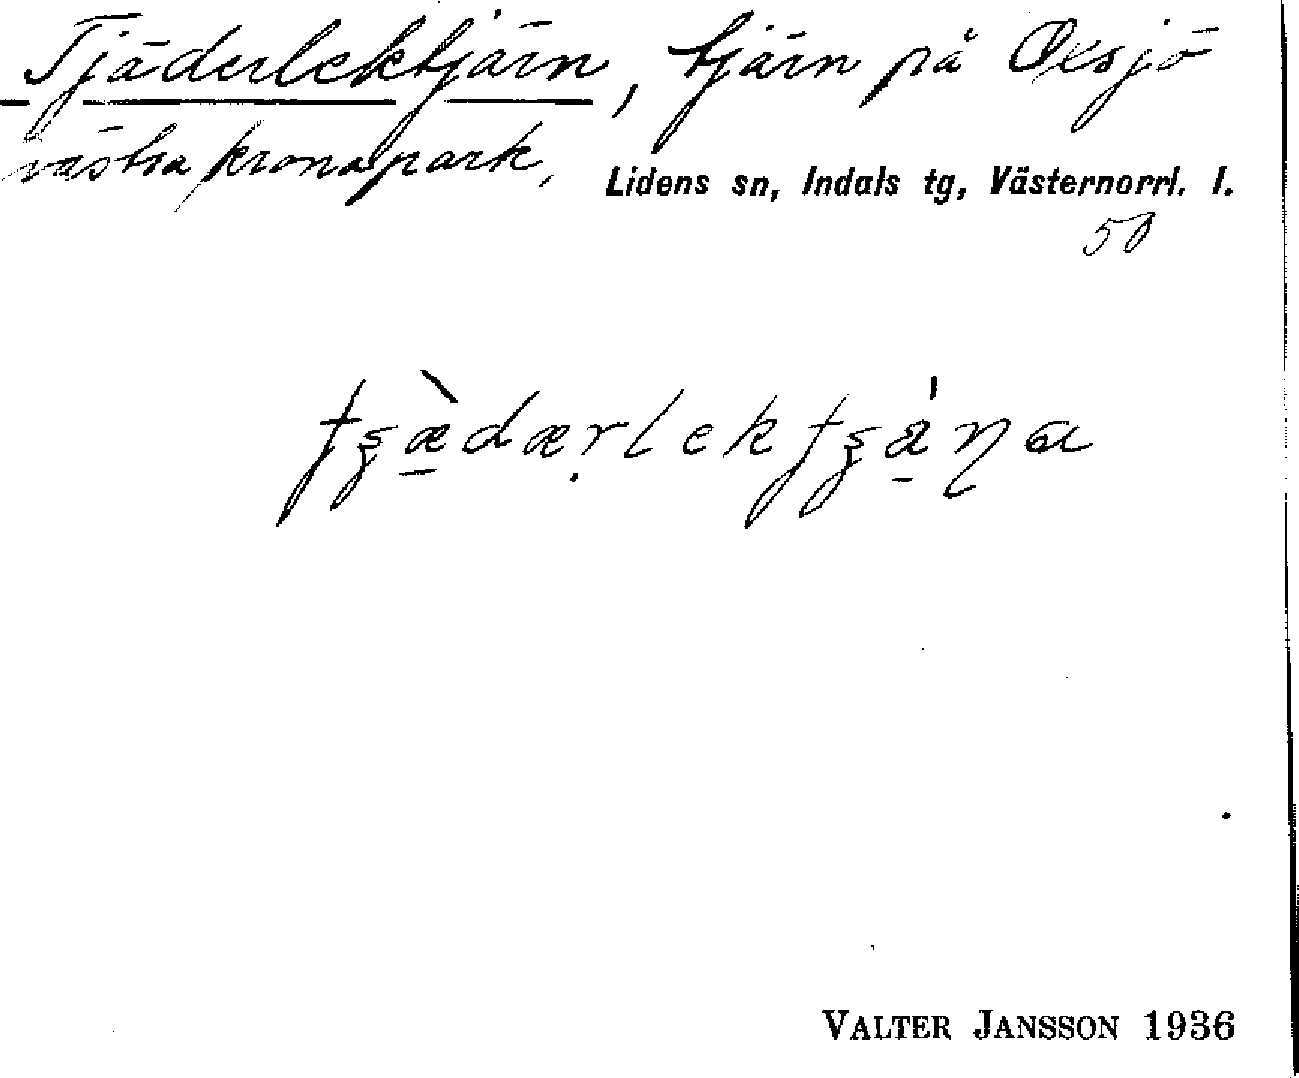 Tjäderlektjärn, tjärn på Oxsjö
västra kronopark, Lidens sn, Indals tg, Västernorrl. l.
50
VALTER JANSSON 1936